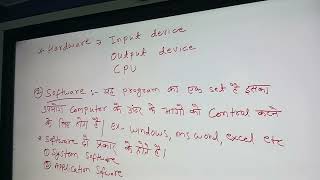 * Hardware → Input device
Output device
CPU
② Software :- यह program का एक set है इसका
उपयोग computer के अंदर के भागो को Control करने
के लिए होता है। ex- windows, ms word, excel etc
* Software दो प्रकार के होते है।
① System Software
② Application Sofware